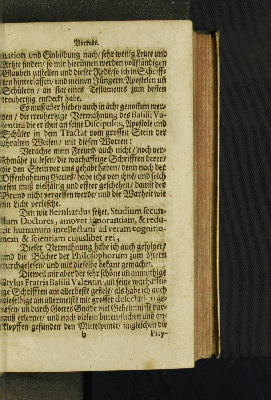 Vorrede.
mation und Einbildung nach / sehr wenig Leute und
Aertzte finden / so mir hierinnen werden vollständigen
Glauben zustellen und dieser Rede / so ich in Schrifften
hinterlassen / und meinen Jüngern, Aposteln und
Schülern / an statt eines Testaments zum besten
treuhertzig entdeckt habe.
Es muß aber hiebey auch in acht genommen werden /
die treuhertzige Vermahnung des Basilii Valentini
die er thut an seine Discipulos, Apostole und
Schüler in dem Tractat vom grossen Stein der
uhralten Weisen / mit diesen Worten:
Verachte mein Freund auch nicht / noch verschmähe
zu lesen / die warhafftige Schrifften derer /
die den Stein vor uns gehabt haben / denn nach der
Offenbahrung Gottes / habe ichs von ihnen und solch
lesen muß vielfältig und offters geschehen / damit der
Grund nicht vergessen werde / und die Warheit wie
ein Licht verlesche.
Den wie Bernhardus setzet, Studium secundum
Doctores, amovet ignorantiam, & reducit
humanum intellectum ad veram cognitionem
& scientiam cujuslibet rei,
Dieser Vermahnung habe ich auch gefolget /
und die Bücher der Philosophorum zum öftern
durchgelesen / und mir dieselbe bekant gemachet.
Dieweil mir aber der sehr schöne un anmuthige
Stylus Fratris Basilii Valentini, un seine warhafftige
Schrifften am allerbesten gefiele / als habe ich auch
dieselbige am allermeisten mit grosser
durch Gottes Gnade viel Geheimnisse daraus
erlernet / und nach vielem hinter suchen und anklopffen
gefunden den Mittelpunct / imgleichen die
b
Phy-